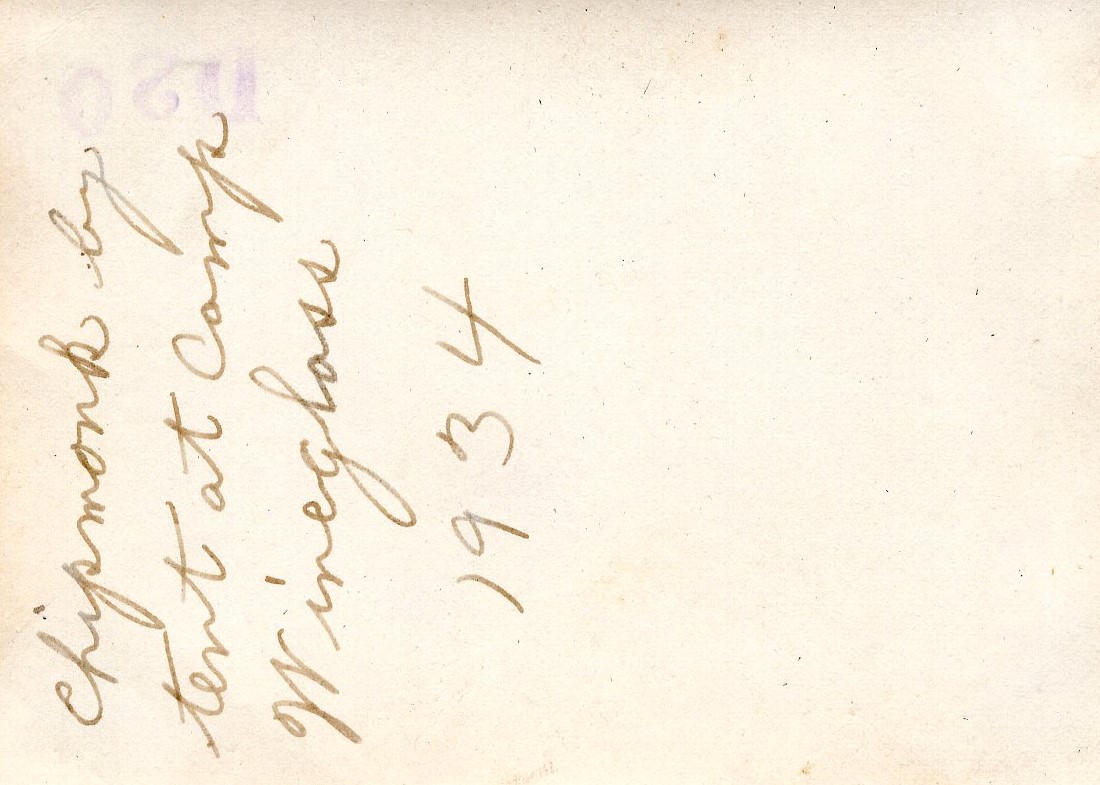 Chipmonk by
tent at Camp
Wineglass
1934